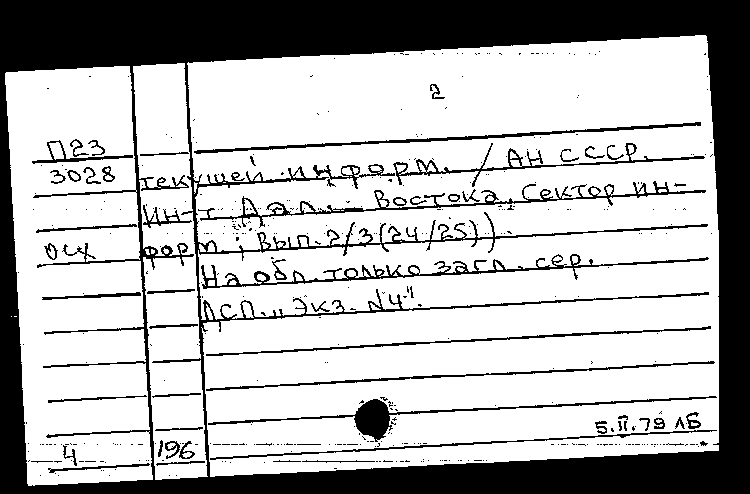 2
П23
3028 текущей информ. / АН СССР.
Ин-т Дал. Востока, Сектор ин-
осх форм ; Вып. 2/3(24/25)).
На обл. только загл. сер.
ДСП. „Экз. №4".
5.II.79 ЛБ
4 196